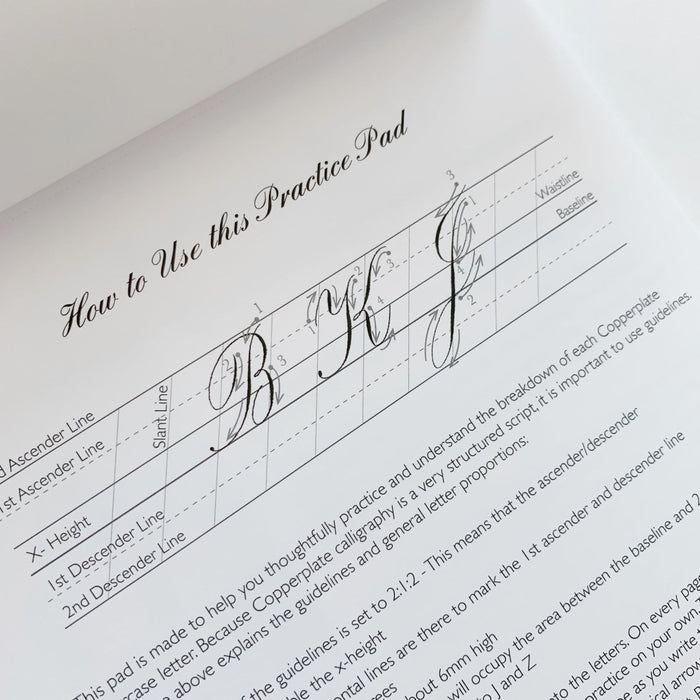 How to Use this Practice Pad
Waistline
Baseline
3
1
4
2
2
3
1
4
1
2
3
B K J
Ascender Line
1st Ascender Line
Slant Line
X- Height
1st Descender Line
2nd Descender Line
This pad is made to help you thoughtfully practice and understand the breakdown of each Copperplate
letter. Because Copperplate calligraphy is a very structured script, it is important to use guidelines.
above explains the guidelines and general letter proportions:
the guidelines is set to 2:1:2 - This means that the ascender/descender
the x-height
lines are there to mark the 1st ascender and descender line
6mm high
will occupy the area between the baseline and
and Z
the letters. On every
practice on your own.
as you write